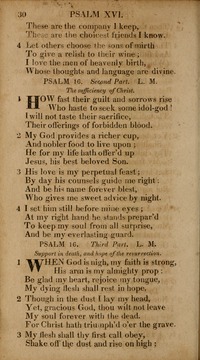 30 PSALM XVI.
These are the company I keep,
These are the choicest friends I know.
4 Let others choose the sons of mirth
To give a relish to their wine;
I love the men of heavenly birth,
Whose thoughts and language are divine.
PSALM 16. Second Part. L. M.
The sufficiency of Christ.
1 HOW fast their guilt and sorrows rise
Who haste to seek some idol-god!
I will not taste their sacrifice,
Their offerings of forbidden blood.
2 My God provides a richer cup,
And nobler food to live upon;
He for my life hath offer'd up
Jesus, his best beloved Son.
3 His love is my perpetual feast;
By day his counsels guide me right:
And be his name forever blest,
Who gives me sweet advice by night.
4 I set him still before mine eyes;
At my right hand he stands prepar'd
To keep my soul from all surprise,
And be my everlasting guard.
PSALM 16. Third Part. L. M.
Support in death, and hope of the resurrection.
1 WHEN God is nigh, my faith is strong,
His arm is my almighty prop:
Be glad my heart, rejoice my tongue,
My dying flesh shall rest in hope.
2 Though in the dust I lay my head,
Yet, gracious God, thou wilt not leave
My soul forever with the dead.
For Christ hath triumph'd o'er the grave.
3 My flesh shall thy first call obey,
Shake off the dust and rise on high;